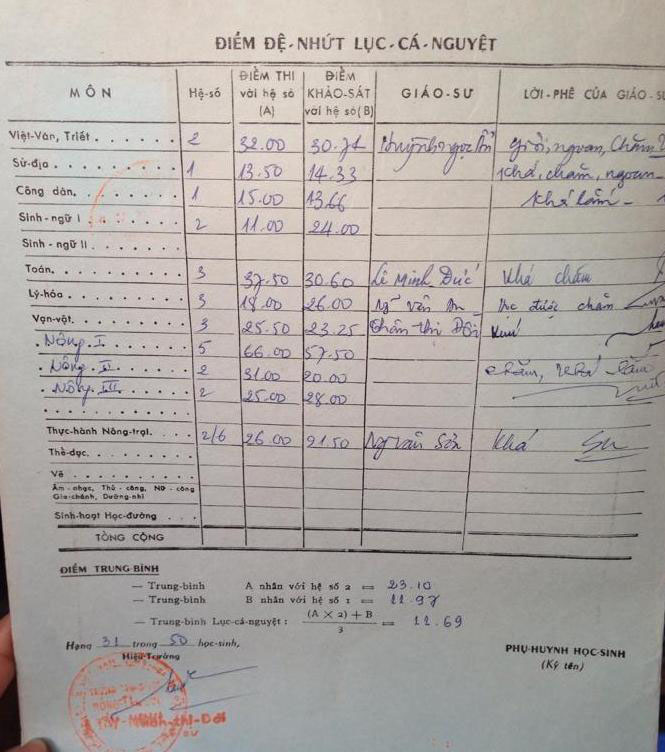 ĐIỂM ĐỆ-NHỨT LỤC-CÁ-NGUYỆT
MÔN Hệ-số ĐIỂM THI với hệ số (A) ĐIỂM KHẢO-SÁT với hệ số (B) GIÁO-SƯ LỜI-PHÊ CỦA GIÁO-SƯ
Việt-Văn, Triết. 2 32.00 30.74 giỏi, ngoan, chăm
Sử-địa 1 13.50 14.33 Khá, chăm, ngoan
Công dân. 1 15.00 13.66 Khá lắm
Sinh-ngữ I 2 11.00 24.00
Sinh-ngữ II
Toán. 3 37.50 30.60 Lê Minh Đức Khá chăm
Lý-hóa. 3 18.00 26.00 học được chăm
Vạn-vật. 3 25.50 23.25
Nông. I 5 66.00 57.50
Nông. II 2 31.00 20.00 chăm, khá lắm
Nông. III 2 25.00 28.00
Thực-hành Nông-trại. 2/6 26.00 91.50 Ng văn Sơn Khá
Thể-dục.
Vẽ
Âm-nhạc, Thủ-công, Nữ-công
Gia-chánh, Dưỡng-nhi
Sinh-hoạt Học-đường
TỔNG CỘNG
ĐIỂM TRUNG-BÌNH
— Trung-bình A nhân với hệ số 2 = 23.10
— Trung-bình B nhân với hệ số 1 = 11.97
— Trung-bình Lục-cá-nguyệt : (A × 2) + B / 3 = 11.69
Hạng 31 trong 50 học-sinh,
Hiệu-Trưởng
PHỤ-HUYNH HỌC-SINH
(Ký tên)